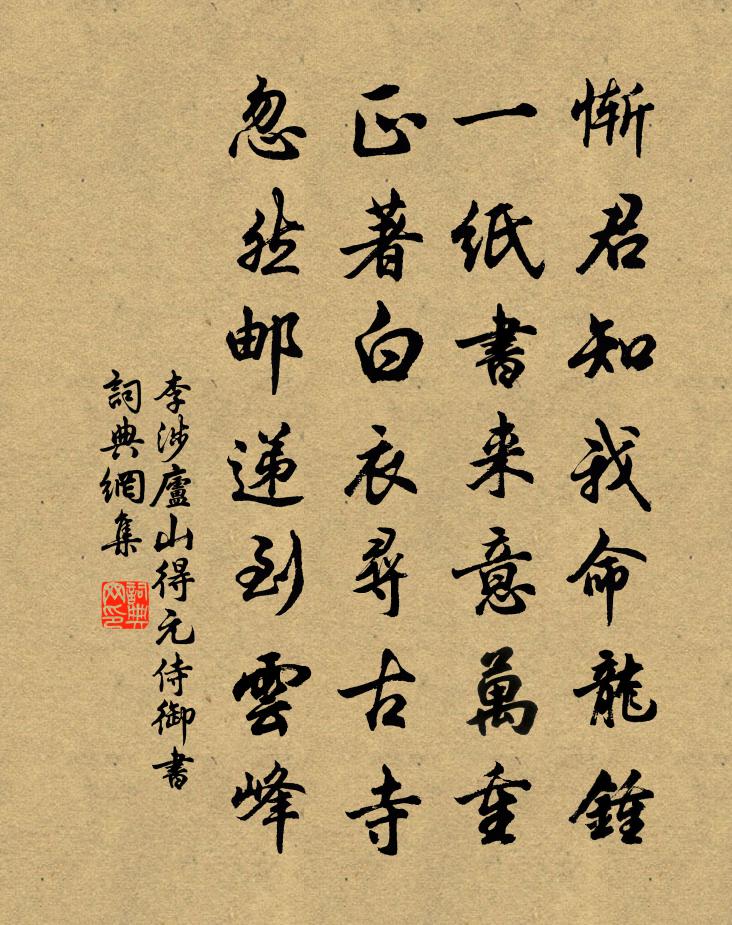 慚君知我命龍鍾
一紙書来意萬重
正著白衣尋古寺
忽然邮递到雲峰
李涉廬山得元侍御書
詞典網集
詞典网印